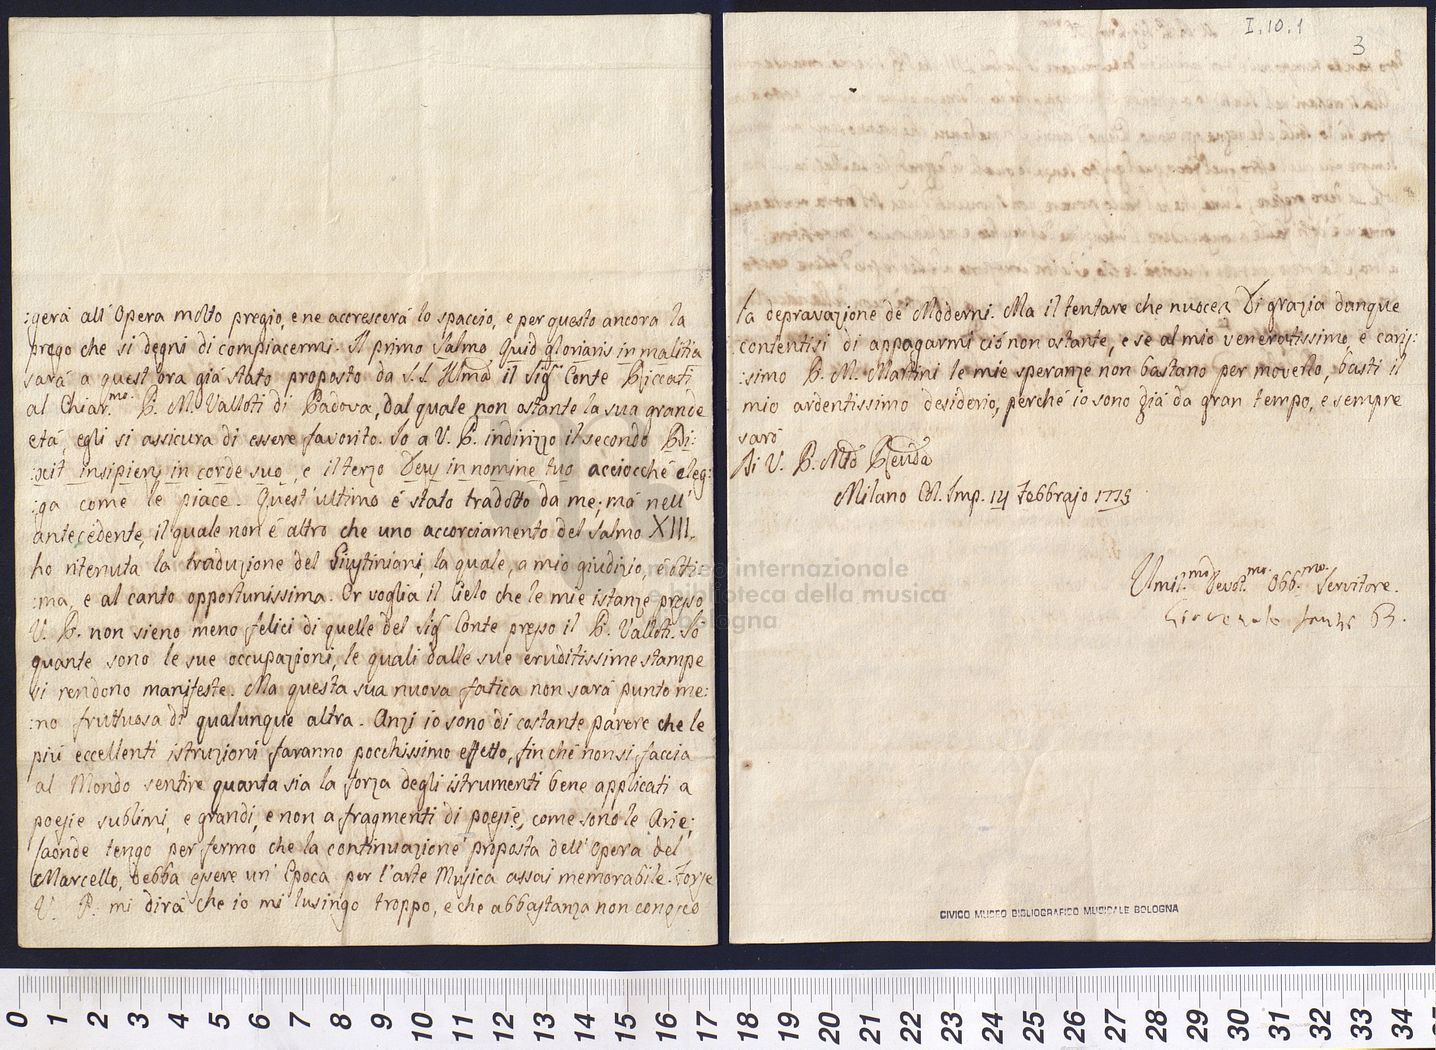 :gerà all'Opera molto pregio, e ne accrescerà lo spaccio, e per questo ancora la
prego che si degni di compiacermi. Il primo Salmo Quid gloriaris in malitia
sarà a quest'ora già stato proposto da S.S. Illma il Sig.r Conte Riccati
al Chiar.mo P. M. Valloti di Padova, dal quale non ostante la sua grande
età, egli si assicura di essere favorito. Io a V. P. indirizzo il secondo Di:
:xit insipiens in corde suo, e il terzo Deus in nomine tuo acciocchè eleg:
:ga come le piace. Quest'ultimo è stato tradotto da me; mà nell'
antecedente, il quale non è altro che uno accorciamento del Salmo XIII.
ho ritenuta la traduzione del Giustiniani, la quale, a mio giudizio, è otti
:ma, e al canto opportunissima. Or voglia il Cielo che le mie istanze presso
V. P. non sieno meno felici di quelle del Sig.r Conte presso il P. Valloti. So
quante sono le sue occupazioni, le quali dalle sue eruditissime stampe
si rendono manifeste. Ma questa sua nuova fatica non sarà punto me:
:no fruttuosa di qualunque altra. Anzi io sono di costante parere che le
più eccellenti istruzioni faranno pocchissimo effetto, finchè non si faccia
al Mondo sentire quanta sia la forza degli istrumenti bene applicati a
poesie sublimi, e grandi, e non a fragmenti di poesie, come sono le Arie;
laonde tengo per fermo che la continuazione proposta dell'Opera del
Marcello, debba essere un'Epoca per l'arte Musica assai memorabile. Forse
V. P. mi dirà che io mi lusingo troppo, e che abbastanza non conosco
I.10.1
3
la depravazione de' Moderni. Ma il tentare che nuoce? Di grazia dunque
consentisi di appagarmi ciò non ostante, e se al mio veneratissimo, e caris:
:simo P. M. Martini le mie speranze non bastano per moverlo, basti il
mio ardentissimo desiderio, perchè io sono già da gran tempo, e sempre
sarò
Di V. P. Mto Revda
Milano Col. Imp. 14 Febbrajo 1775
Umil.mo Devot.mo Obb.mo Servitore.
museo internazionale
e biblioteca della musica
bologna
CIVICO MUSEO BIBLIOGRAFICO MUSICALE BOLOGNA
0 1 2 3 4 5 6 7 8 9 10 11 12 13 14 15 16 17 18 19 20 21 22 23 24 25 26 27 28 29 30 31 32 33 34